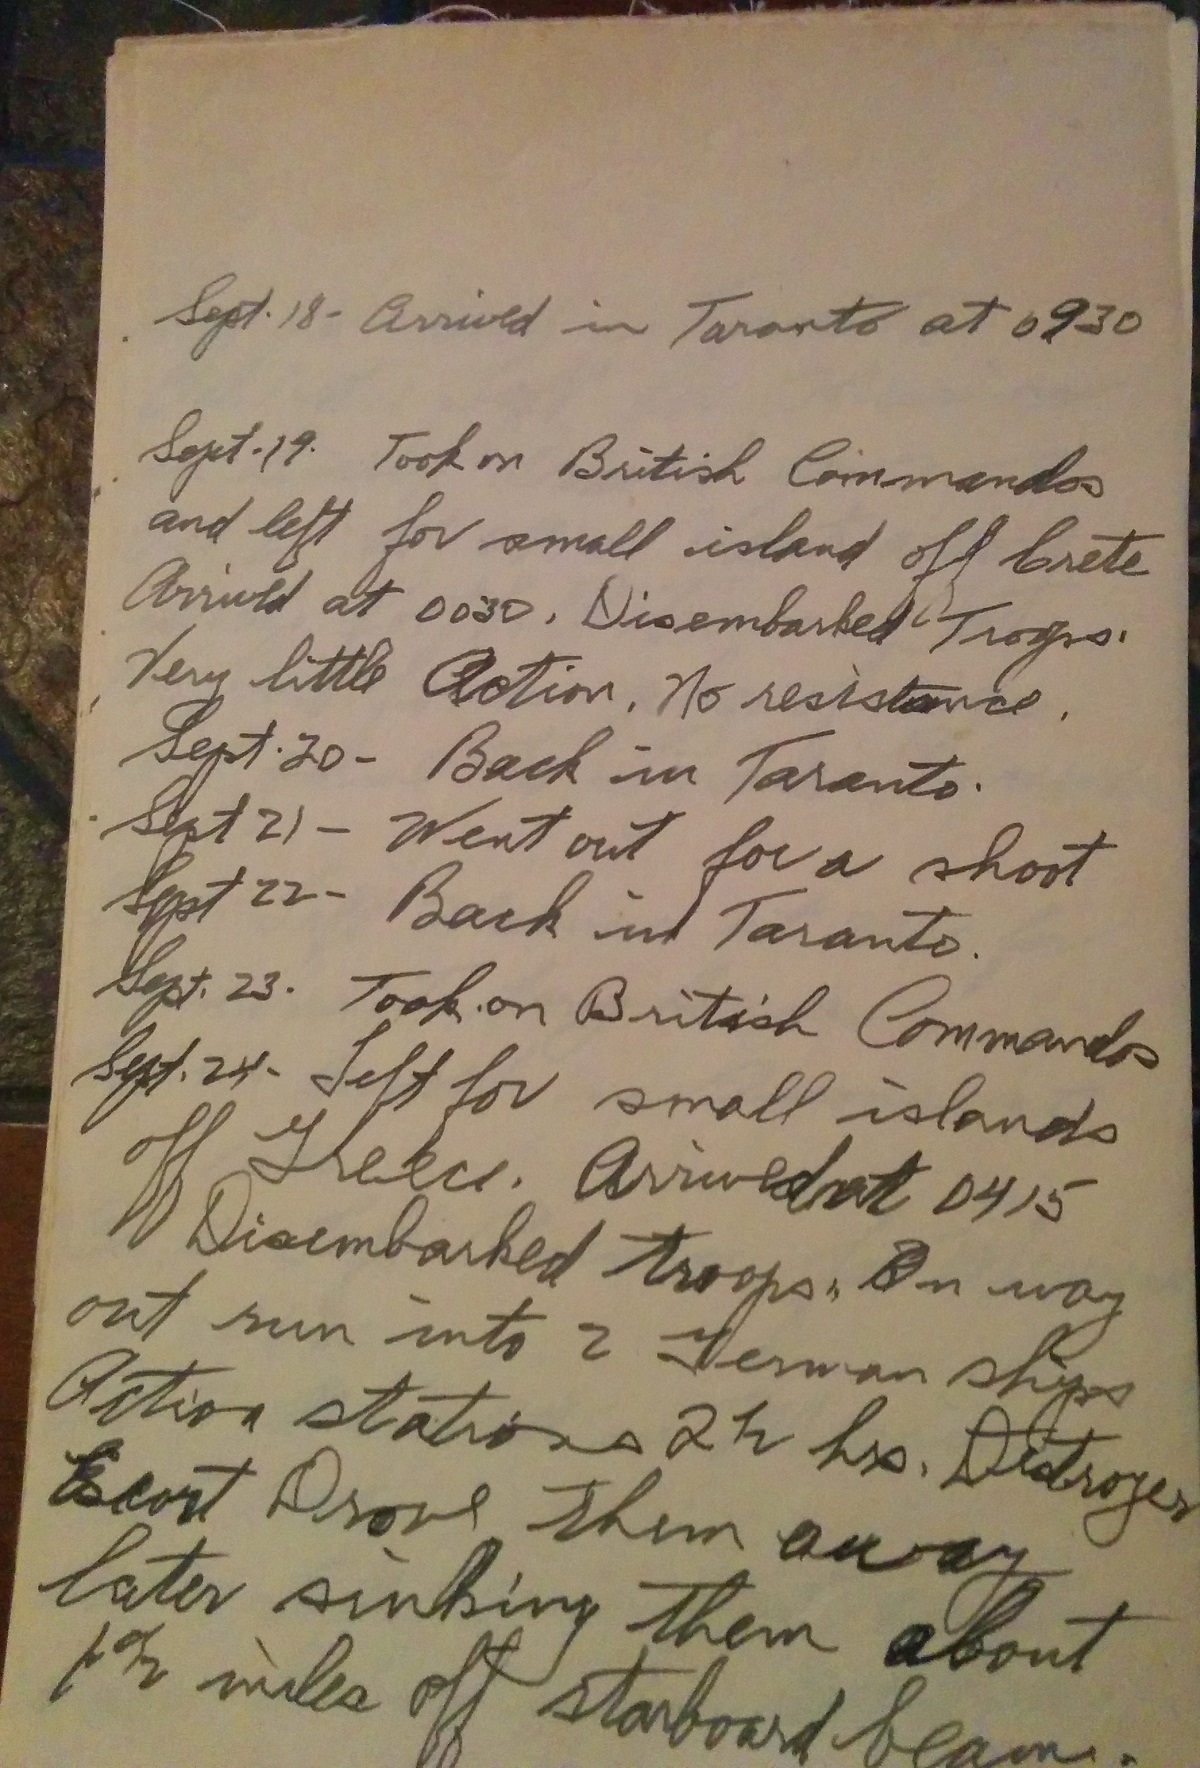 Sept. 18- Arrived in Taranto at 0930
Sept. 19. Took on British Commandos
and left for small island off Crete
Arrived at 0030. Disembarked Troops.
Very little Action. No resistance.
Sept. 20- Back in Taranto.
Sept 21- Went out for a shoot
Sept 22- Back in Taranto.
Sept. 23. Took on British Commandos
Sept. 24- Left for small islands
off Greece. Arrived at 0415
Disembarked troops. On way
out run into 2 German ships
Action stations 2½ hrs. Destroyer
Escort Drove them away
later sinking them about
miles off starboard beam.